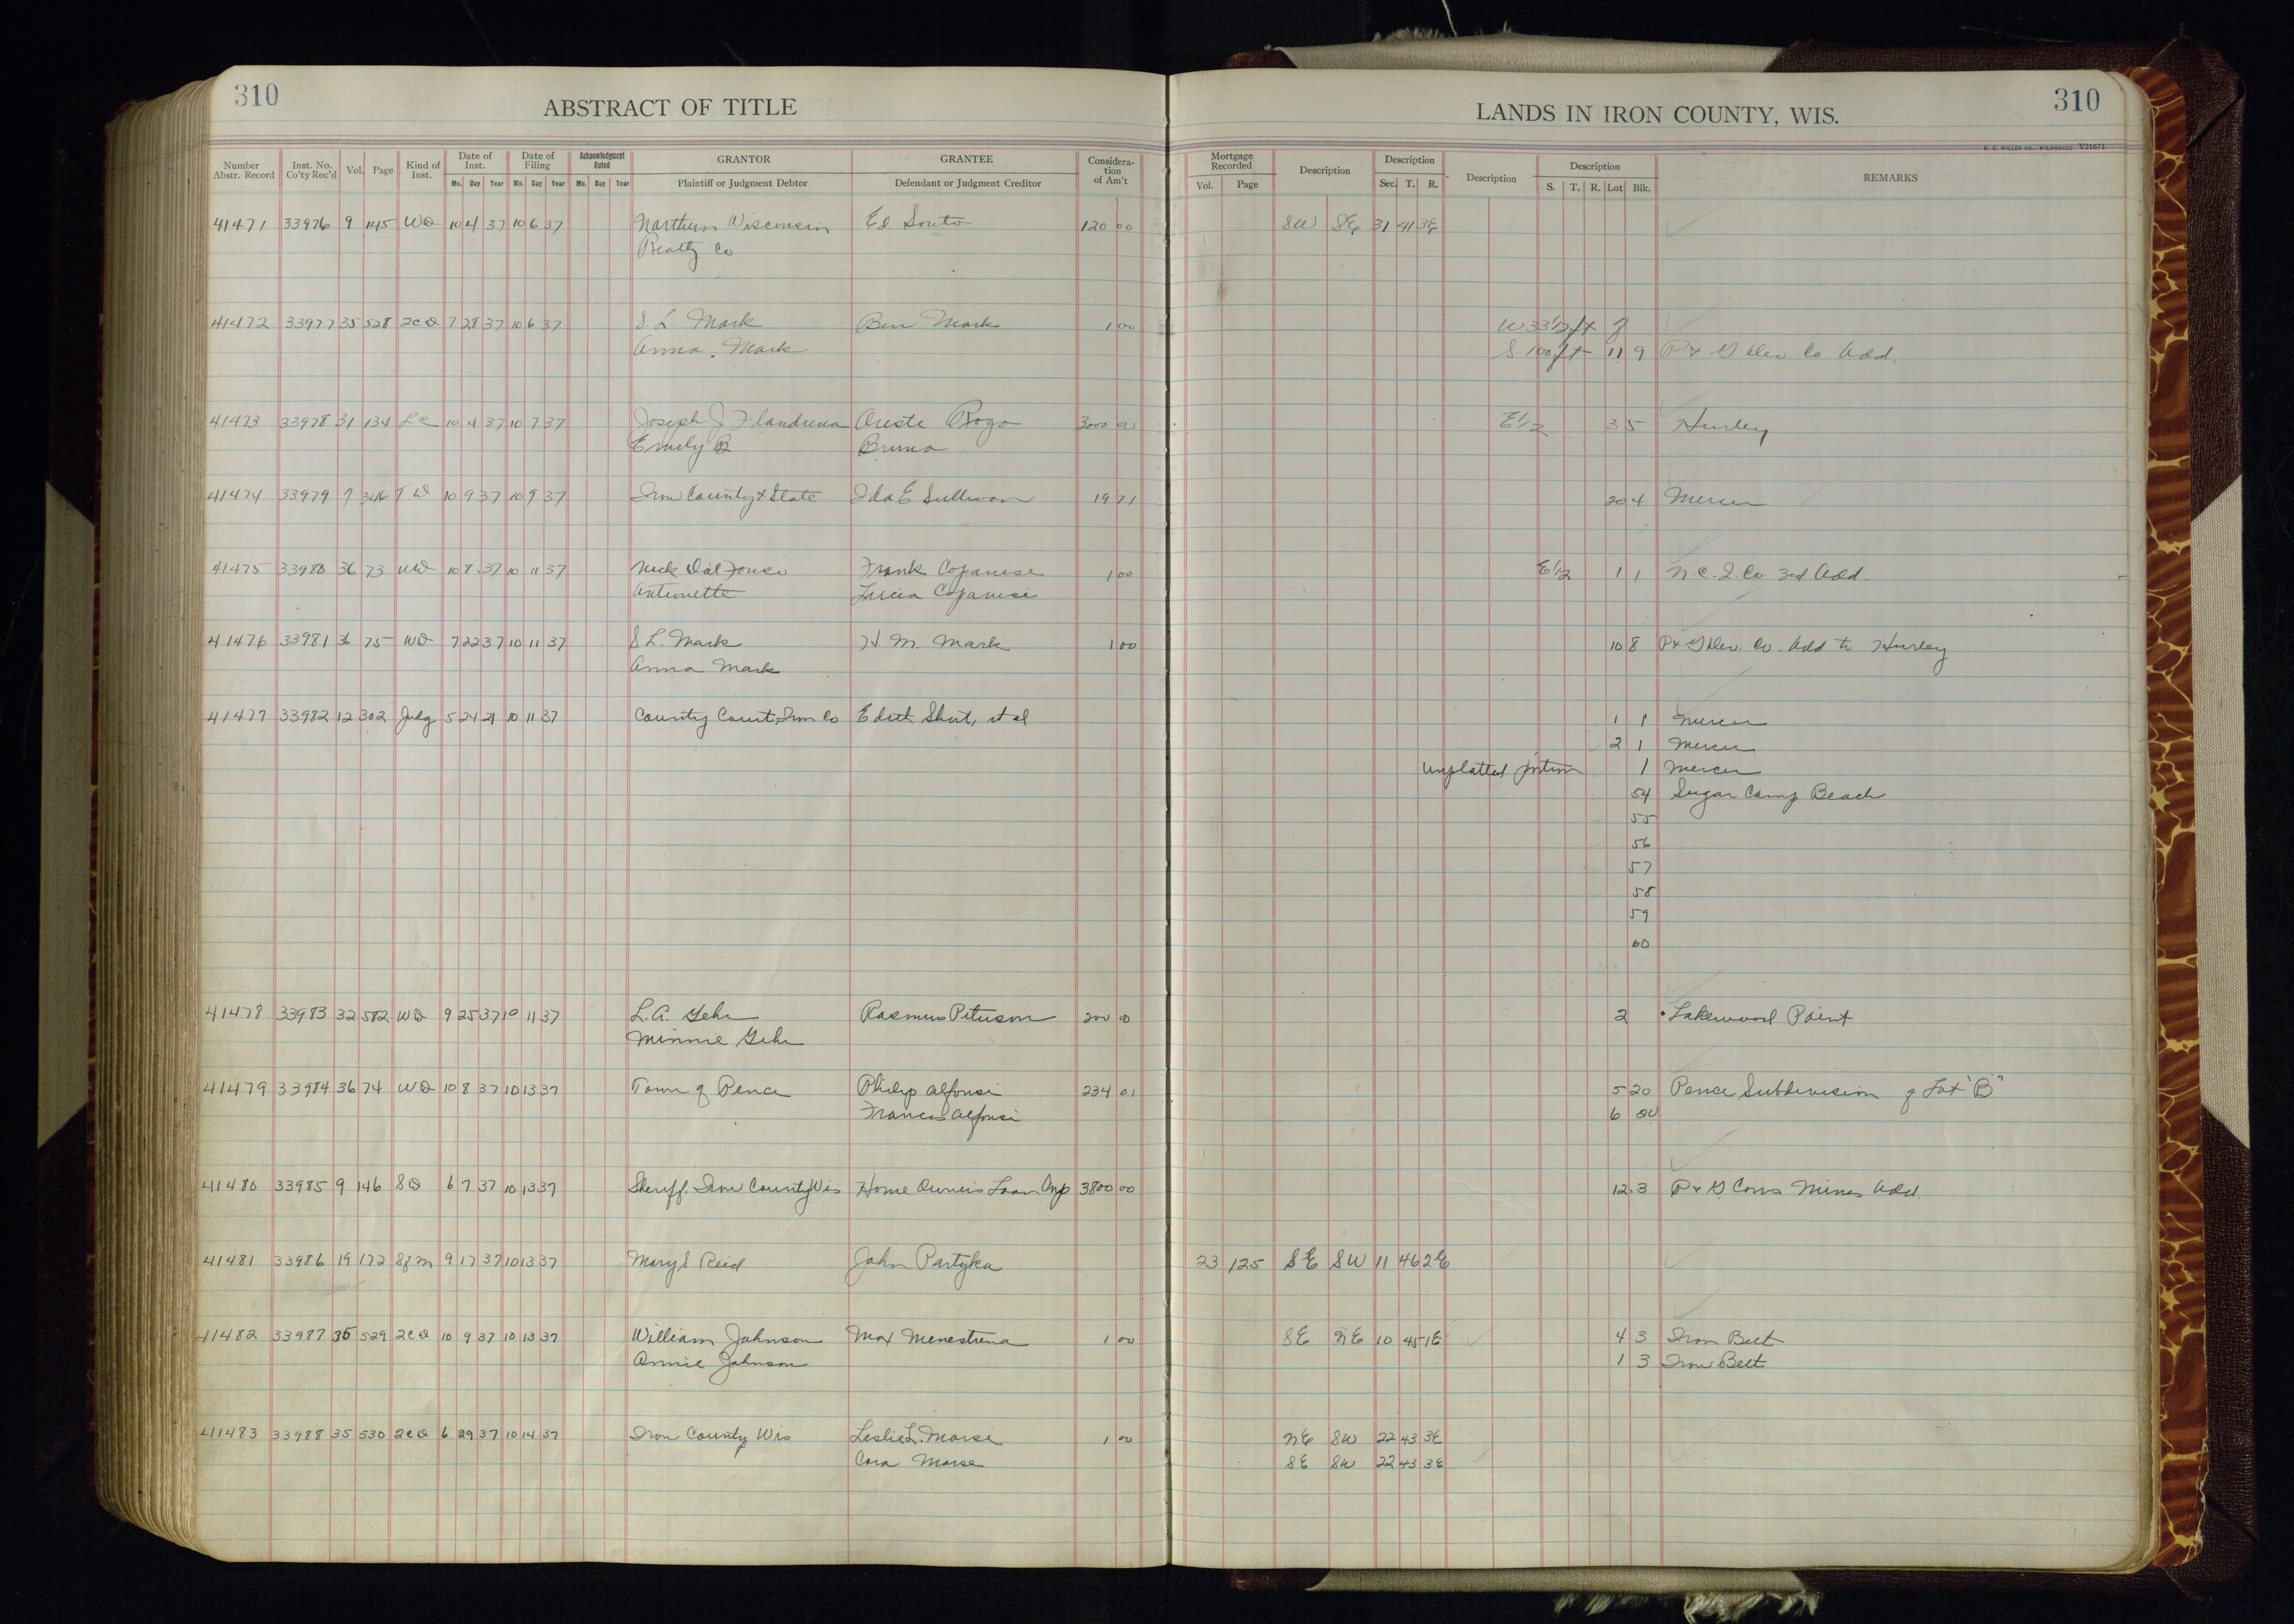 310
ABSTRACT OF TITLE
LANDS IN IRON COUNTY, WIS.
310
H. C. MILLER CO., MILWAUKEE Y21671
Number Abstr. Record Inst. No. Co'ty Rec'd Vol. Page Kind of Inst. Date of Inst. Mo. Day Year Date of Filing Mo. Day Year Acknowledgment Dated Mo. Day Year GRANTOR Plaintiff or Judgment Debtor GRANTEE Defendant or Judgment Creditor Considera-tion of Am't Mortgage Recorded Vol. Page Description Description Sec. T. R. Description Description S. T. R. Lot Blk. REMARKS
41471 33976 9 145 WD 10 4 37 10 6 37 Northern Wisconsin Ed Souto 120 00 SW SE 31 41 3E
Realty Co
41472 33977 35 528 2CD 7 28 37 10 6 37 S. L. Mark Ben Mark 1 00 W 33 1/2 ft of
Anna Mark S 100 ft 11 9 P & G Dev. Co Add.
41473 33978 31 134 LC 10 4 37 10 7 37 Joseph J Flandrena Oreste Rogo 3000 00 E1/2 3 5 Hurley
Emily B Bruna
41474 33979 7 346 TD 10 9 37 10 9 37 Iron County & State Ida E Sullivan 19 71 20 4 Mercer
41475 33980 36 73 WD 10 8 37 10 11 37 Nick Dal Fonso Frank Copanese 1 00 E1/2 1 1 N. C. I. Co. 3rd Add.
Antionette Lucia Copanese
41476 33981 36 75 WD 7 22 37 10 11 37 S L. Mark H M. Mark 1 00 10 8 P & G Dev. Co. Add to Hurley
Anna Mark
41477 33982 12 302 Judg 5 24 21 10 11 37 County Court, Iron Co Edith Shut, et al 1 1 Mercer
2 1 Mercer
Unplatted portion 1 Mercer
54 Sugar Camp Beach
55
56
57
58
59
60
41478 33983 32 582 WD 9 25 37 10 11 37 L. A. Gehr Rasmus Peterson 200 00 2 Lakewood Point
Minnie Gehr
41479 33984 36 74 WD 10 8 37 10 13 37 Town of Pence Philip Alfonsi 234 01 5 20 Pence Subdivision of Lot "B"
Frances Alfonsi 6 20
41480 33985 9 146 SD 6 7 37 10 13 37 Sheriff. Iron County Wis Home Owners Loan Corp 3800 00 12 3 P & G Cons Mines Add.
41481 33986 19 172 Sfm 9 17 37 10 13 37 Mary S Reid John Partyka 23 125 SE SW 11 46 2E
41482 33987 35 529 2CD 10 9 37 10 13 37 William Johnson Max Menestrina 1 00 SE NE 10 45 1E 4 3 Iron Belt
Annie Johnson 1 3 Iron Belt
41483 33988 35 530 2CD 6 29 37 10 14 37 Iron County Wis Leslie L. Morse 1 00 NE SW 22 43 3E
Cora Morse SE SW 22 43 3E